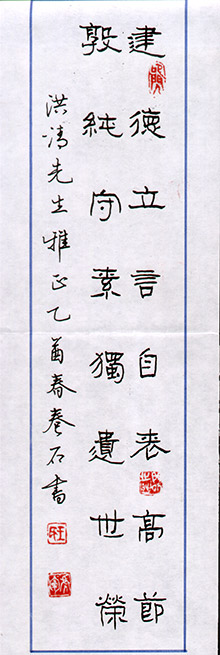 建德立言自表高節
敦純守素獨遺世榮
洪濤先生雅正乙酉春卷石書